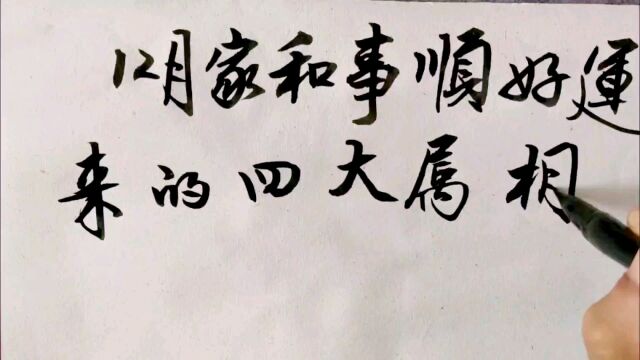 12月家和事順好運
来的四大属相